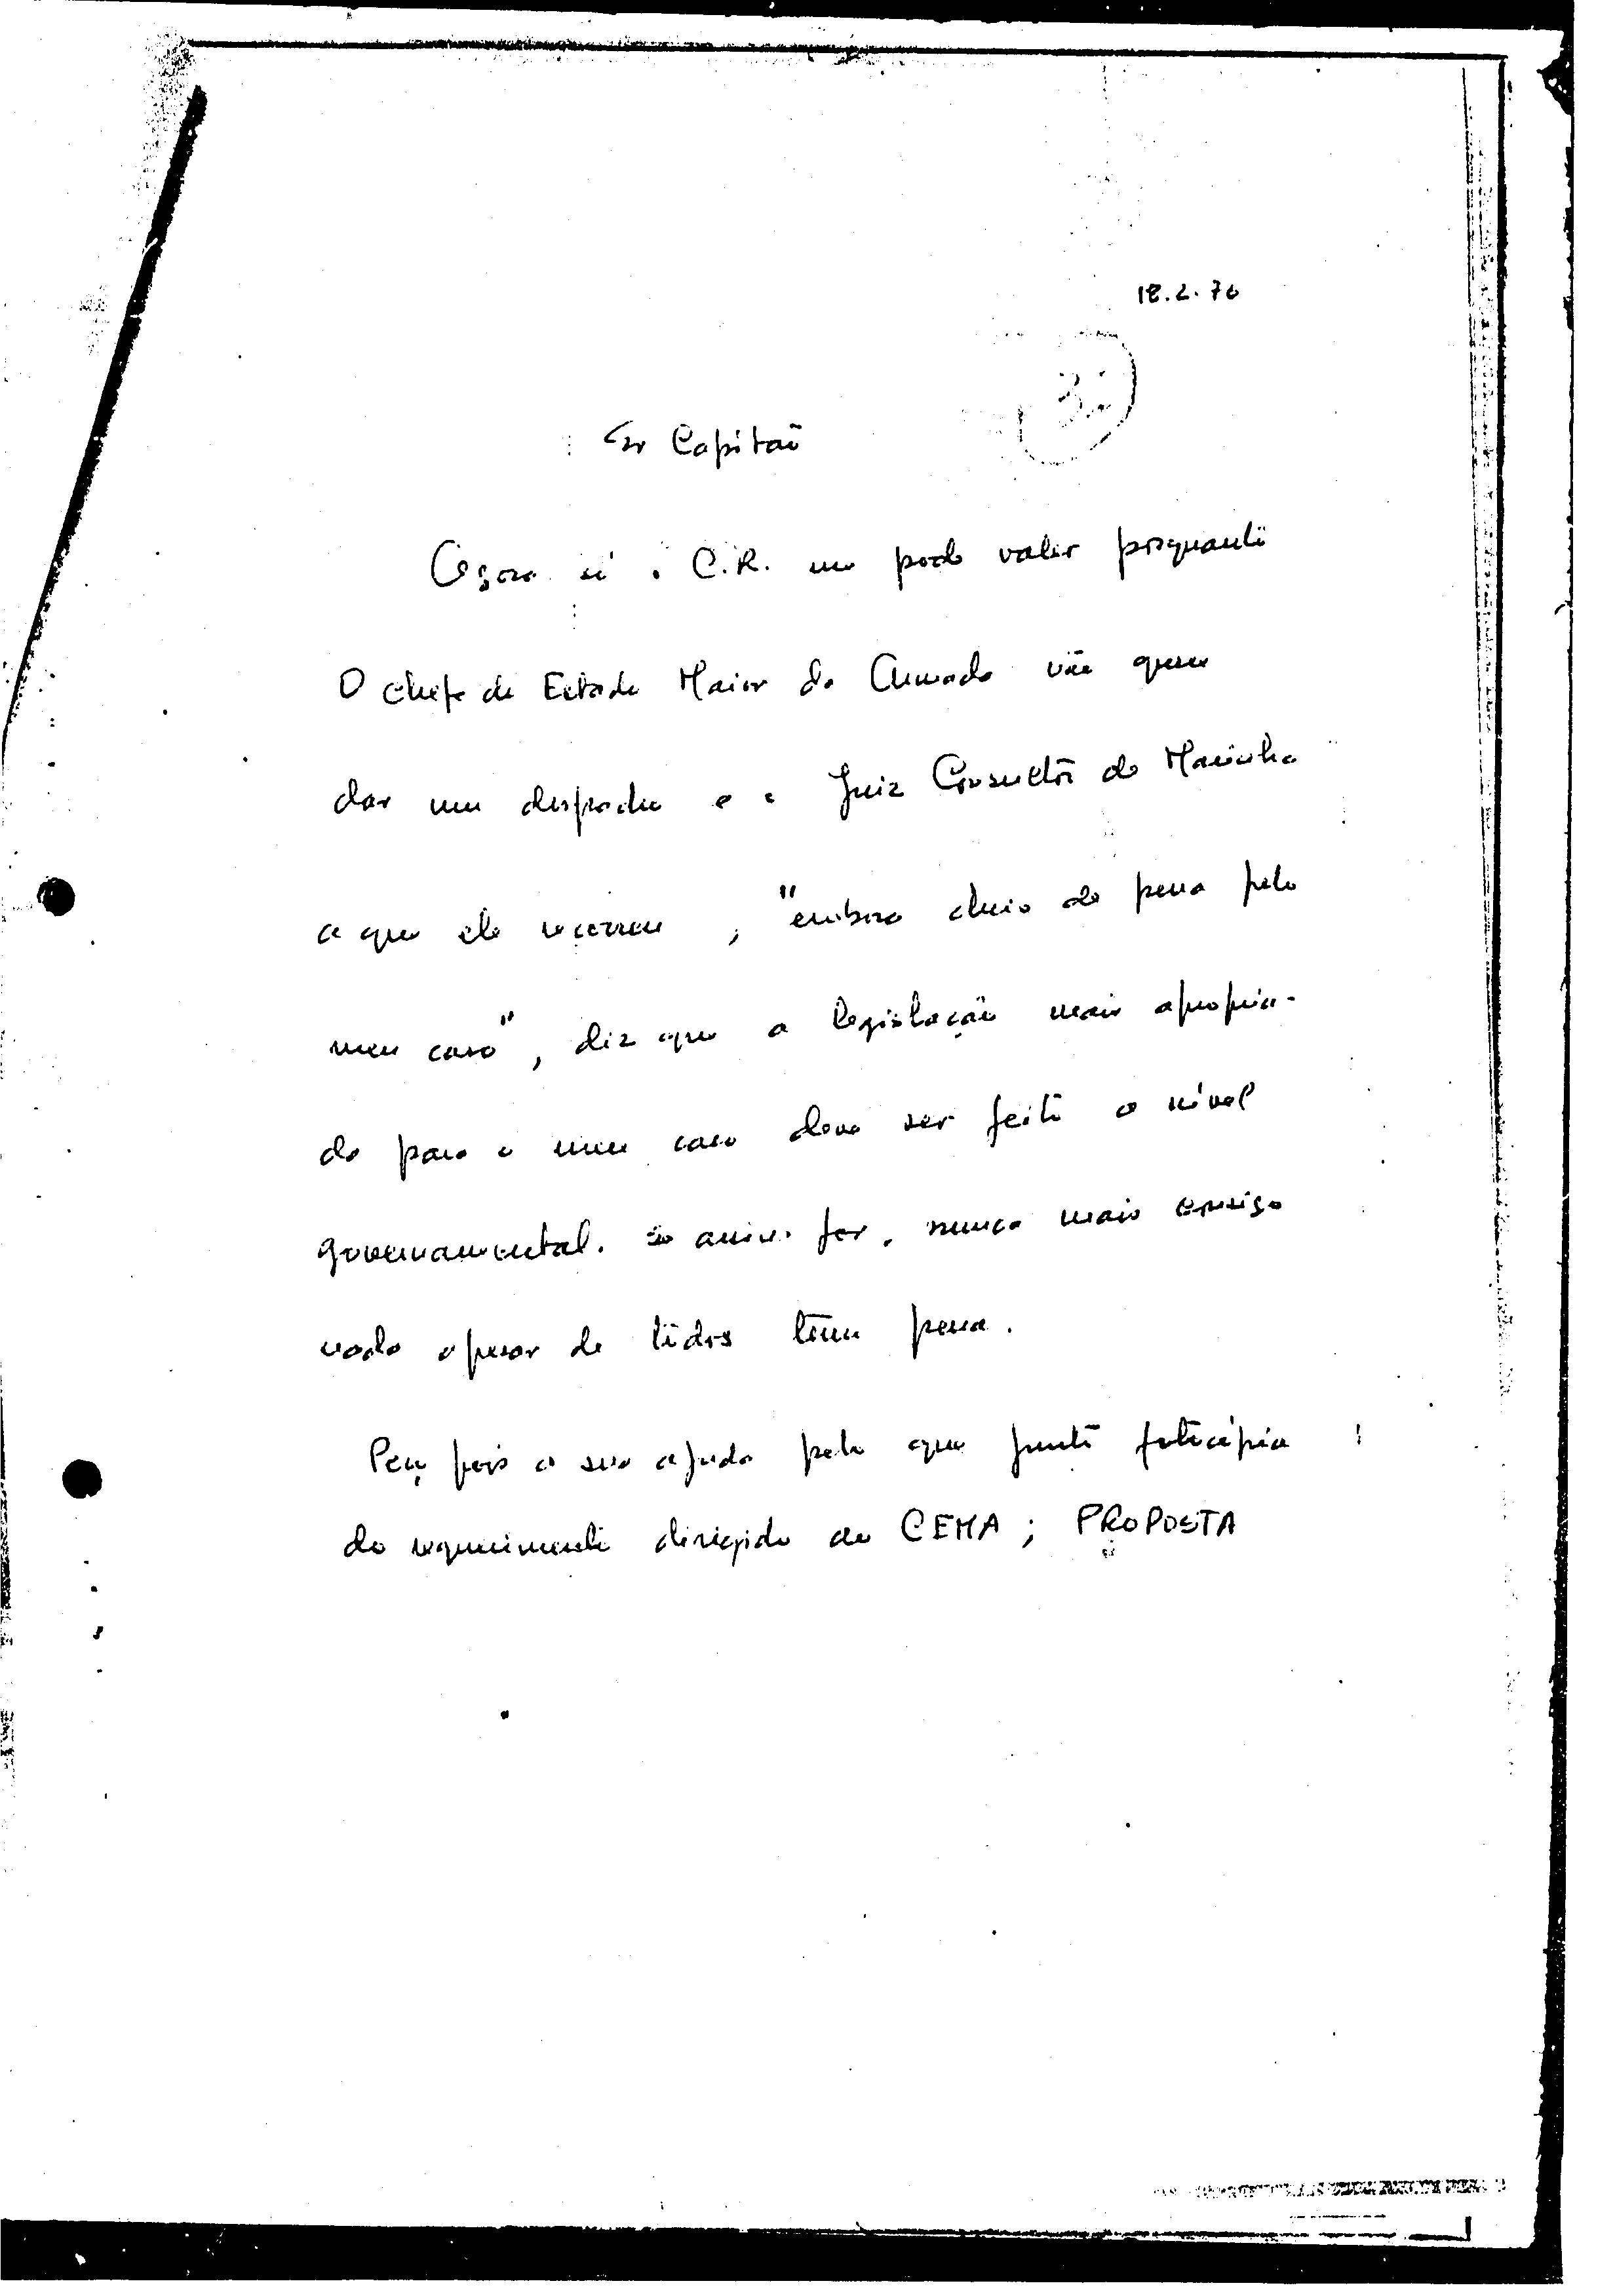 18.2.76
Sr Capitão
Agora só o C.R. me pode valer porquanto
O chefe do Estado Maior da Armada não quer
dar um despacho e o Juiz Consultor da Marinha
a que ele recorreu, "embora cheio de pena pelo
meu caso", diz que a legislação mais apropria-
da para o meu caso deve ser feita a nível
governamental. Se assim for, nunca mais consigo
nada apesar de todos terem pena.
Peço pois a sua ajuda pelo que junto fotocópia
do requerimento dirigido ao CEMA; PROPOSTA